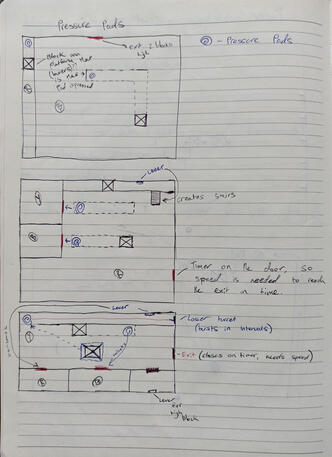 Pressure Pads
exit 2 blocks
high
- Pressure Pads
Block on
platform that
is
Pad is pressed
Lever
creates stairs
Timer on the door, so
speed is needed to reach
the exit in time.
Lever
Laser turret
(bursts in intervals)
Exit (closes on timer, needs speed)
Lever
exit
high
block